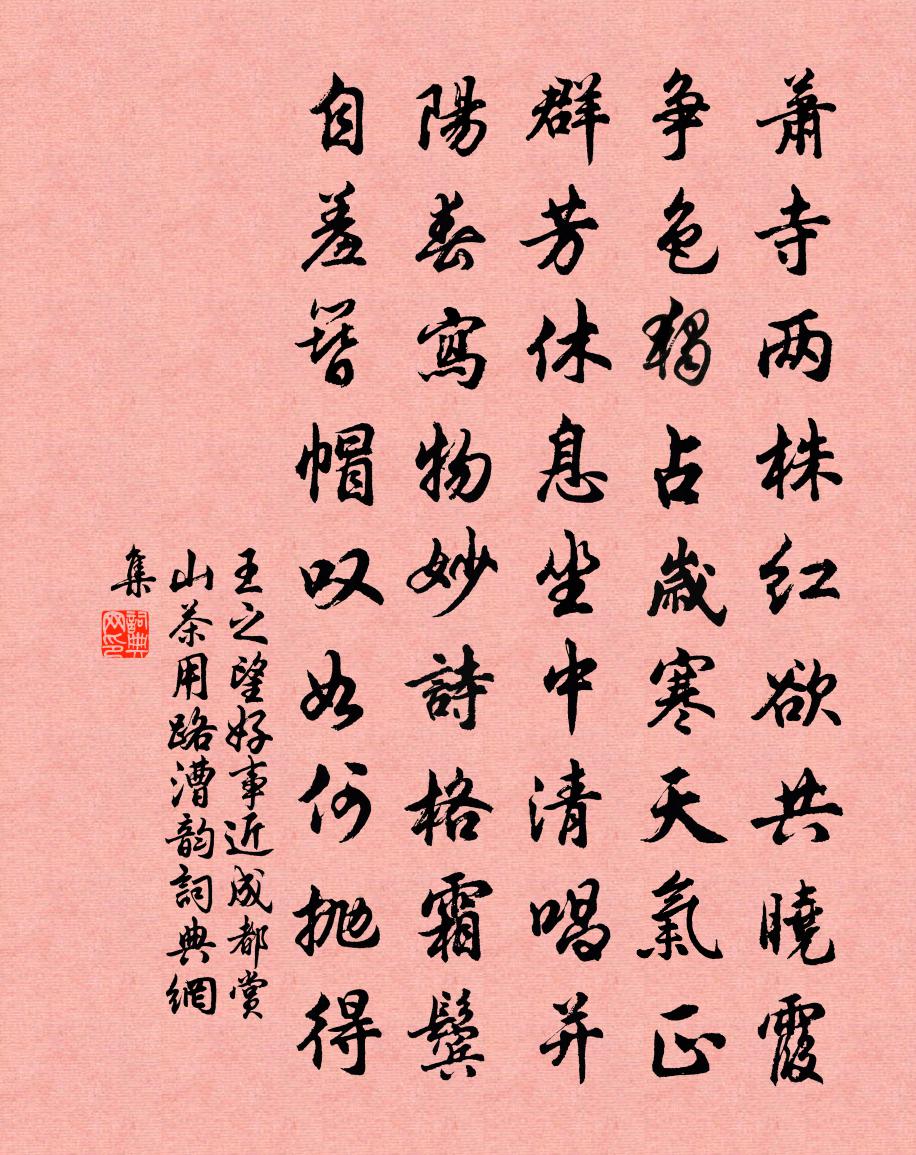 蕭寺两株红欲共曉霞
争色獨占歲寒天氣正
群芳休息坐中清唱并
陽春寫物妙詩格霜鬓
自羞簪帽叹如何抛得
王之望好事近成都赏
山茶用路漕韵詞典網
集
詞典网印